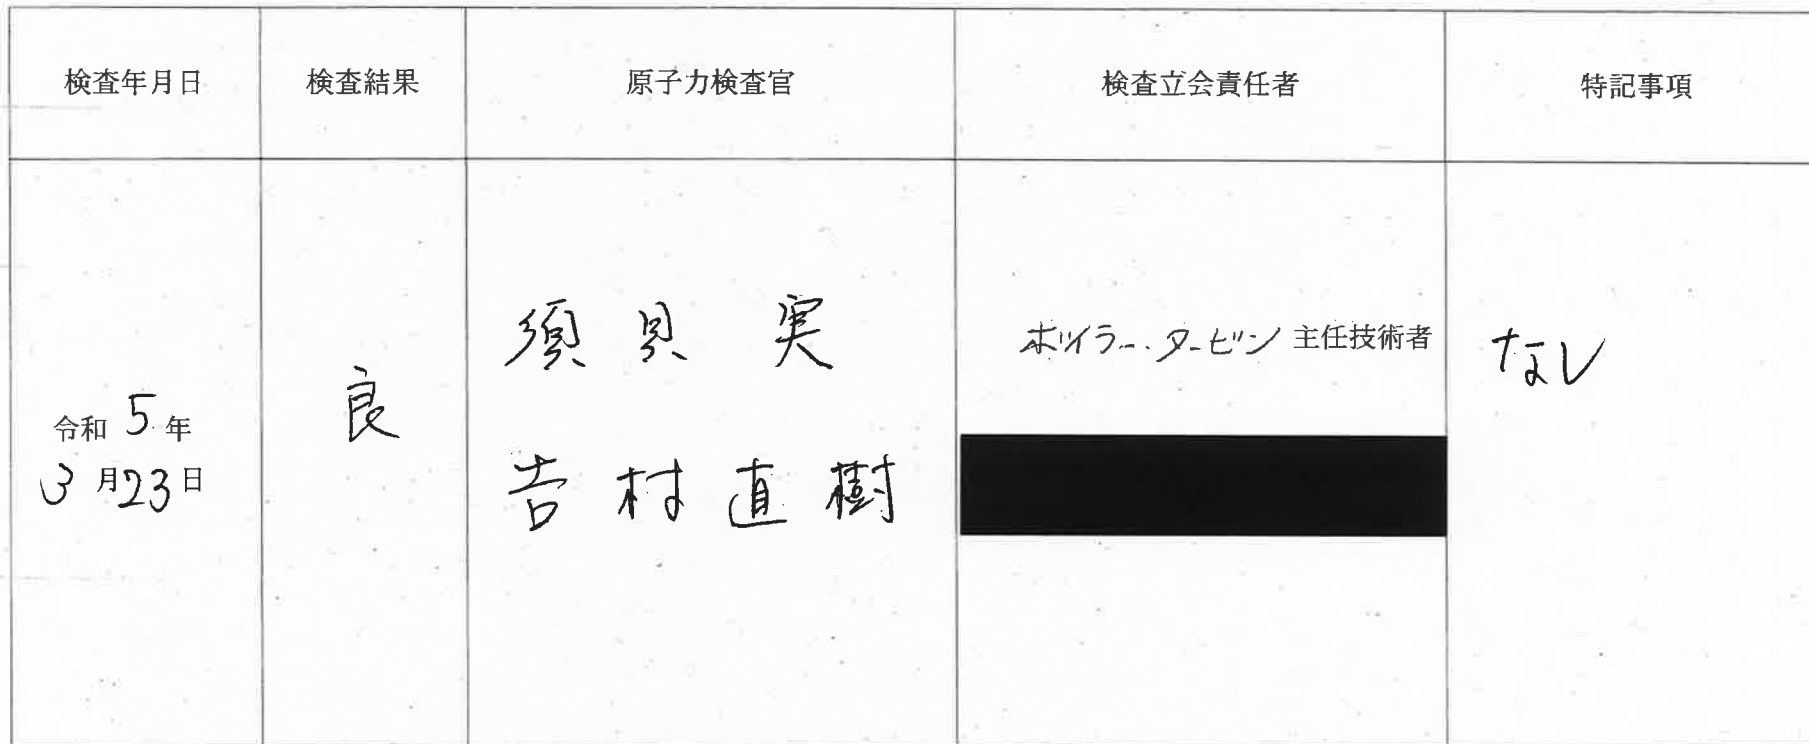 検査年月日 検査結果 原子力検査官 検査立会責任者 特記事項
令和 5 年
3 月 23 日
良
須貝 実
吉村直樹
ボイラー・タービン 主任技術者
なし